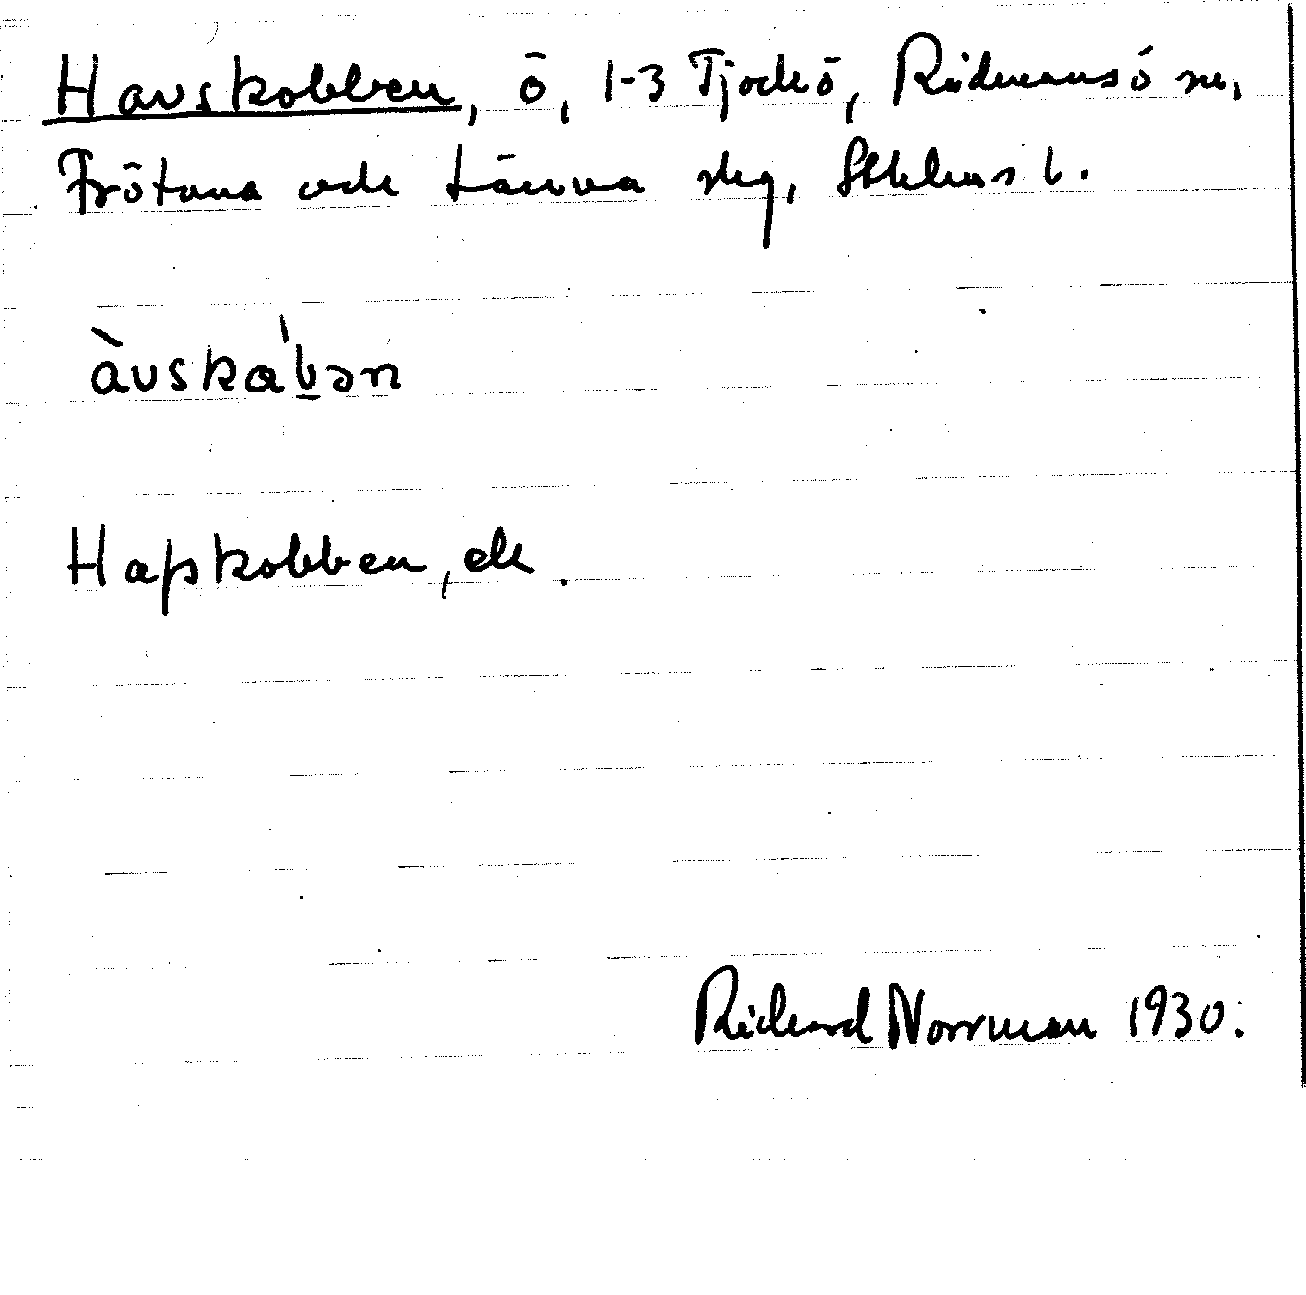 Havskobben, ö, 1-3 Tjockö, Rådmansö sn,
Frötuna och Länna skg, Sthlms l.
àvskα'b̲ən
Hafskobben, ek.
Richard Norrman 1930.